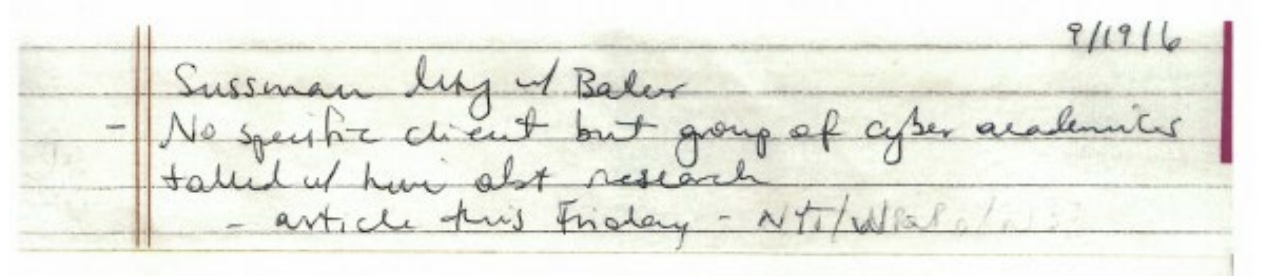 9/19/16
Sussman mtg w/ Baker
- No specific client but group of cyber academics
talked w/ him abt research
- article this Friday - NYT/WPost